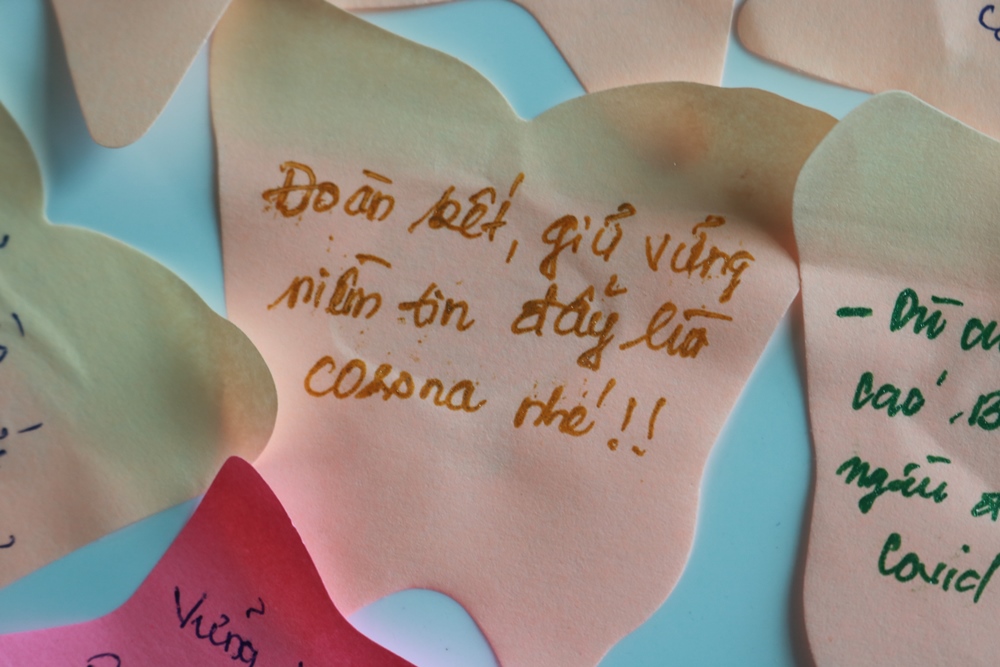 Đoàn kết, giữ vững
niềm tin đẩy lùi
corona nhé!!
cao
covid
Vững